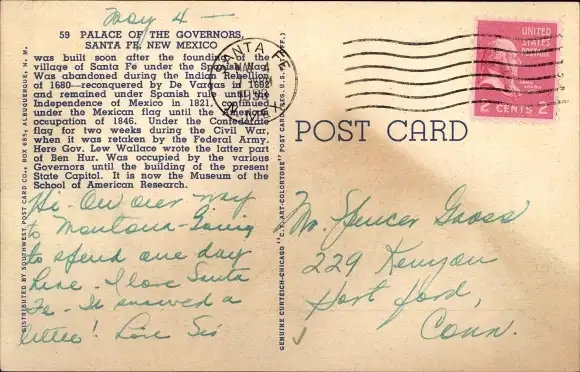 May 4 —
59 PALACE OF THE GOVERNORS,
SANTA FE, NEW MEXICO
was built soon after the founding of the
village of Santa Fe under the Spanish flag.
Was abandoned during the Indian Rebellion
of 1680—reconquered by De Vargas in 1692
and remained under Spanish rule until the
Independence of Mexico in 1821, continued
under the Mexican flag until the American
occupation of 1846. Under the Confederate
flag for two weeks during the Civil War,
when it was retaken by the Federal Army.
Here Gov. Lew Wallace wrote the latter part
of Ben Hur. Was occupied by the various
Governors until the building of the present
State Capitol. It is now the Museum of the
School of American Research.
Hi- On our way
to Montana- Going
to spend one day
here. I love Santa
Fe- It snowed a
little! Love Sis
DISTRIBUTED BY SOUTHWEST POST CARD CO., BOX 685, ALBUQUERQUE, N. M.
GENUINE CURTEICH-CHICAGO "C.T. ART-COLORTONE" POST CARD (REG. U. S. PAT. OFF.)
SANTA FE
N. MEX.
UNITED
STATES
POSTAGE
2 CENTS 2
POST CARD
Mr. Spencer Gross
229 Kenyon
Hartford,
Conn.